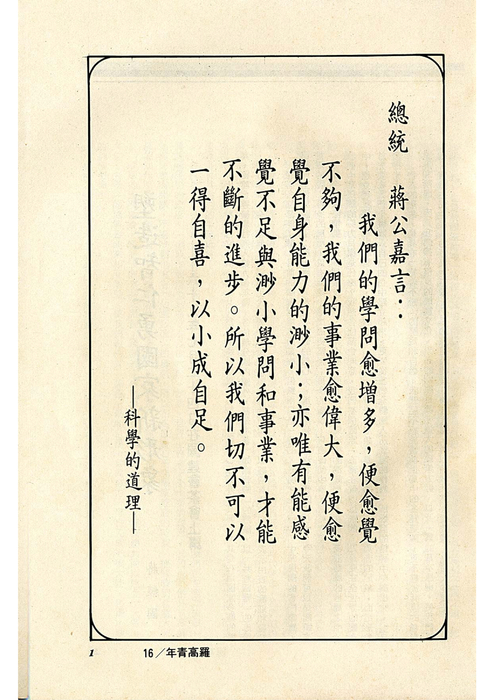 總統　蔣公嘉言：
我們的學問愈增多，便愈覺
不夠，我們的事業愈偉大，便愈
覺自身能力的渺小；亦唯有能感
覺不足與渺小學問和事業，才能
不斷的進步。所以我們切不可以
一得自喜，以小成自足。
—科學的道理—
1
16／年青高羅